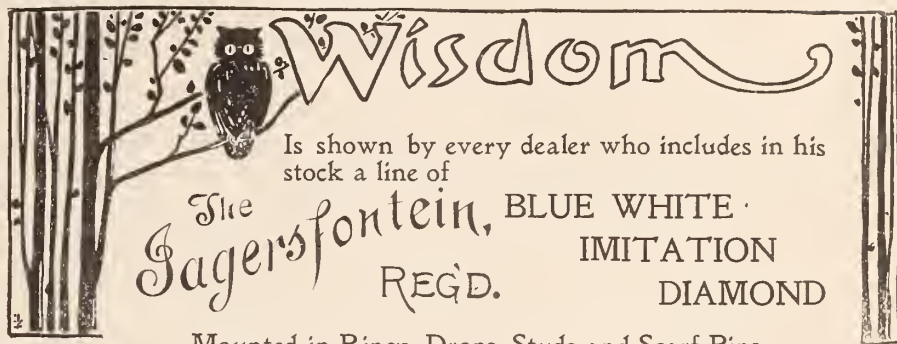 Wisdom
Is shown by every dealer who includes in his
stock a line of
The Jagersfontein, BLUE WHITE
REG'D. IMITATION
DIAMOND
Mounted in Rings, Drops, Studs and Scarf Pins